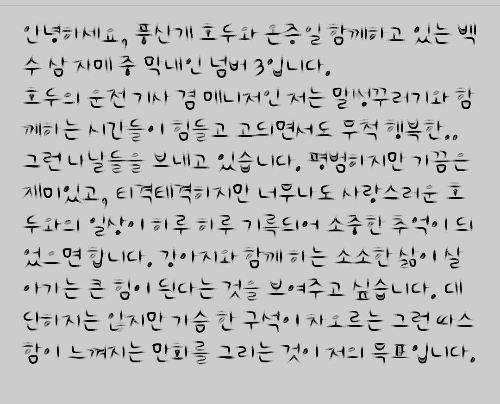 안녕하세요, 풍산개 호두와 온종일 함께하고 있는 백
수 삼 자매 중 막내인 넘버 3입니다.
호두의 운전 기사 겸 매니저인 저는 말썽꾸러기와 함
께하는 시간들이 힘들고 고되면서도 무척 행복한..
그런 나날들을 보내고 있습니다. 평범하지만 가끔은
재미있고, 티격태격하지만 너무나도 사랑스러운 호
두와의 일상이 하루 하루 기록되어 소중한 추억이 되
었으면 합니다. 강아지와 함께 하는 소소한 삶이 살
아가는 큰 힘이 된다는 것을 보여주고 싶습니다. 대
단하지는 않지만 가슴 한 구석이 차오르는 그런 따스
함이 느껴지는 만화를 그리는 것이 저의 목표입니다.